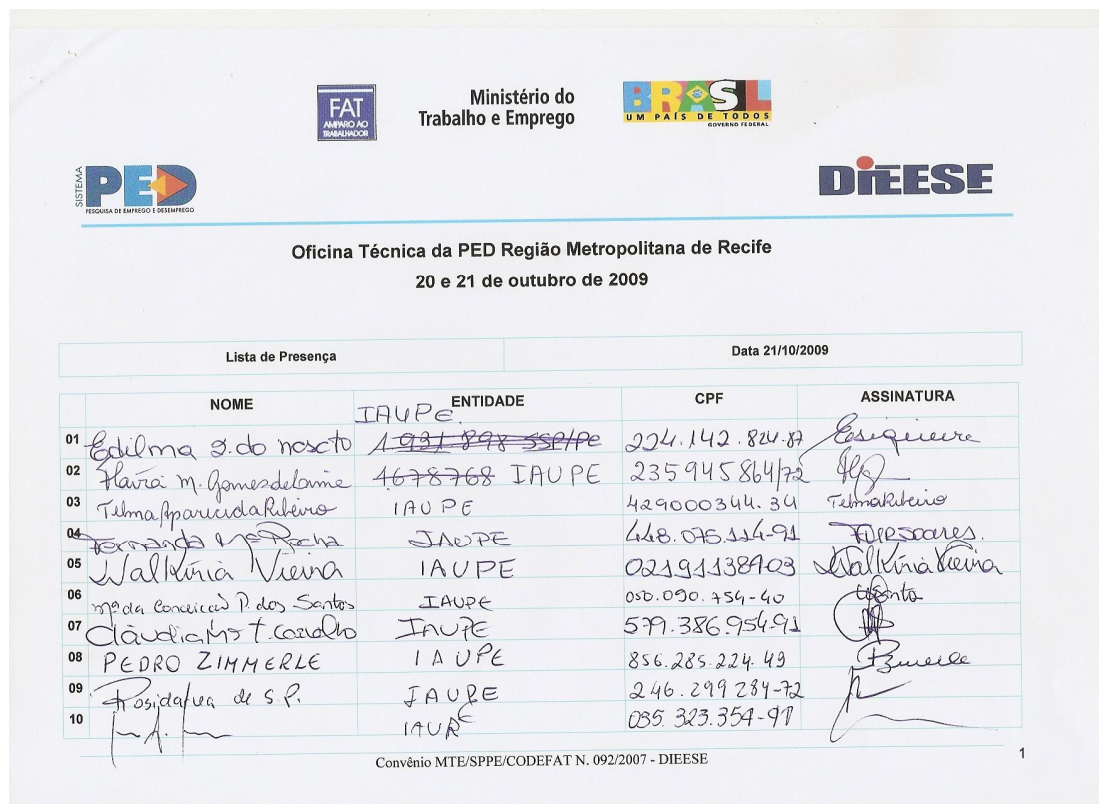 FAT
AMPARO AO
TRABALHADOR
Ministério do
Trabalho e Emprego
BRASIL
UM PAÍS DE TODOS
GOVERNO FEDERAL
SISTEMA
PED
PESQUISA DE EMPREGO E DESEMPREGO
DIEESE
Oficina Técnica da PED Região Metropolitana de Recife
20 e 21 de outubro de 2009
Lista de Presença Data 21/10/2009
NOME ENTIDADE CPF ASSINATURA
IAUPE
01 Edilma S. do 1 931 898 SSP/PE 224.142.824-87 Esiqueira
02 Flávia M. Gomes de 4678768 IAUPE 235945864/72
03 Telma Aparecida Ribeiro IAUPE 429000344.34 Telma Ribeiro
04 Fernanda Mª Rocha IAUPE 448.075.114-91
05 Walkíria Vieira IAUPE 021911384-03 Walkíria Vieira
06 Mª da Conceição P. dos Santos IAUPE 050.090.754-40
07 Cláudia Mª T. Carvalho IAUPE 579.386.954-91
08 PEDRO ZIMMERLE IAUPE 856.285.224.49
09 de S.P. IAUPE 246.299284-72
10 IAUPE 035.323.354-91
Convênio MTE/SPPE/CODEFAT N. 092/2007 - DIEESE
1